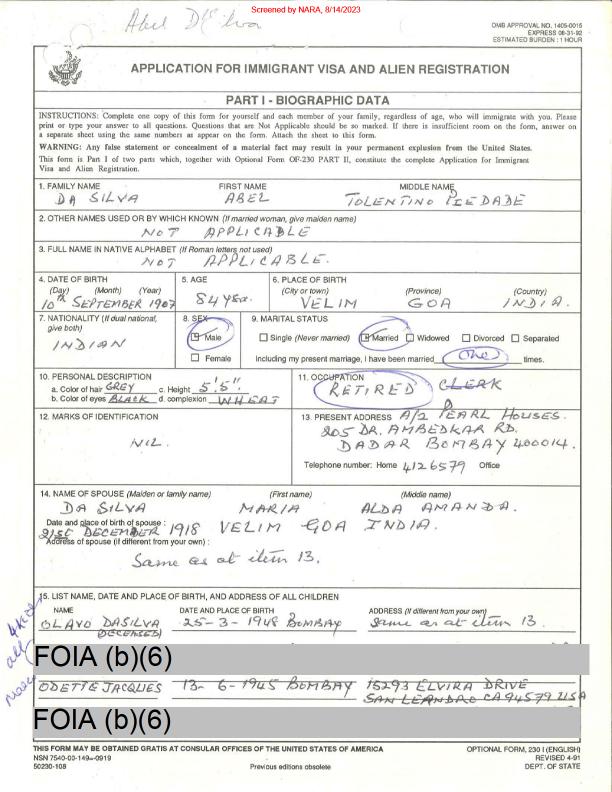 Screened by NARA, 8/14/2023
Abel DSilva
OMB APPROVAL NO. 1405-0015
EXPIRES 08-31-92
ESTIMATED BURDEN : 1 HOUR
APPLICATION FOR IMMIGRANT VISA AND ALIEN REGISTRATION
PART I - BIOGRAPHIC DATA
INSTRUCTIONS: Complete one copy of this form for yourself and each member of your family, regardless of age, who will immigrate with you. Please
print or type your answer to all questions. Questions that are Not Applicable should be so marked. If there is insufficient room on the form, answer on
a separate sheet using the same numbers as appear on the form. Attach the sheet to this form.
WARNING: Any false statement or concealment of a material fact may result in your permanent explusion from the United States.
This form is Part I of two parts which, together with Optional Form OF-230 PART II, constitute the complete Application for Immigrant
Visa and Alien Registration.
1. FAMILY NAME FIRST NAME MIDDLE NAME
DA SILVA ABEL TOLENTINO PIEDADE
2. OTHER NAMES USED OR BY WHICH KNOWN (If married woman, give maiden name)
NOT APPLICABLE
3. FULL NAME IN NATIVE ALPHABET (If Roman letters not used)
NOT APPLICABLE.
4. DATE OF BIRTH 5. AGE 6. PLACE OF BIRTH
(Day) (Month) (Year) (City or town) (Province) (Country)
10th SEPTEMBER 1907 84 yrs. VELIM GOA INDIA.
7. NATIONALITY (If dual national, give both) 8. SEX 9. MARITAL STATUS
INDIAN Male Single (Never married) Married Widowed Divorced Separated
Female Including my present marriage, I have been married one times.
10. PERSONAL DESCRIPTION 11. OCCUPATION
a. Color of hair GREY c. Height 5'5". RETIRED CLERK
b. Color of eyes BLACK d. complexion WHEAT
12. MARKS OF IDENTIFICATION 13. PRESENT ADDRESS A/2 PEARL HOUSES.
NIL. 205 DR. AMBEDKAR RD.
DADAR BOMBAY 400014.
Telephone number: Home 4126579 Office
14. NAME OF SPOUSE (Maiden or family name) (First name) (Middle name)
DA SILVA MARIA ALDA AMANDA.
Date and place of birth of spouse :
21st DECEMBER 1918 VELIM GOA INDIA.
Address of spouse (if different from your own) :
Same as at item 13.
15. LIST NAME, DATE AND PLACE OF BIRTH, AND ADDRESS OF ALL CHILDREN
NAME DATE AND PLACE OF BIRTH ADDRESS (If different from your own)
OLAVO DASILVA 25-3-1948 BOMBAY Same as at item 13.
(DECEASED)
FOIA (b)(6)
ODETTE JACQUES 13-6-1945 BOMBAY 15293 ELVIRA DRIVE
SAN LEANDRO CA 94579 USA
FOIA (b)(6)
THIS FORM MAY BE OBTAINED GRATIS AT CONSULAR OFFICES OF THE UNITED STATES OF AMERICA OPTIONAL FORM, 230 I (ENGLISH)
NSN 7540-00-149-0919 REVISED 4-91
50230-108 Previous editions obsolete DEPT. OF STATE